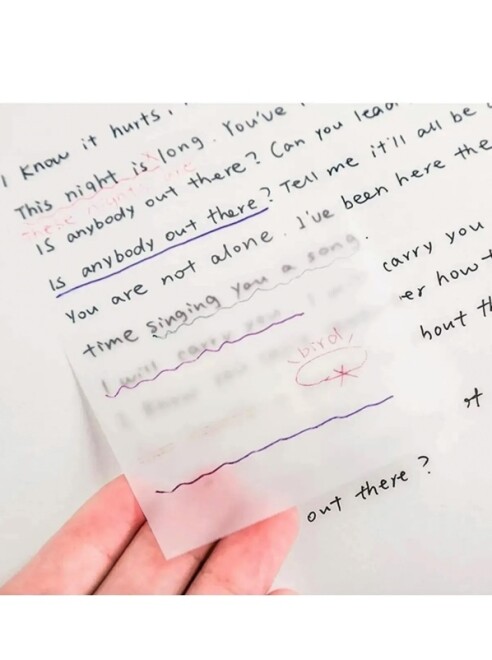 I know it hurts,
This night is long. You've
these nights are
IS anybody out there? Can you lead
IS anybody out there? Tell me it'll all be
You are not alone. I've been here the
time singing you a song.
carry you
I will carry you
er how t
bird
bout th
out there?